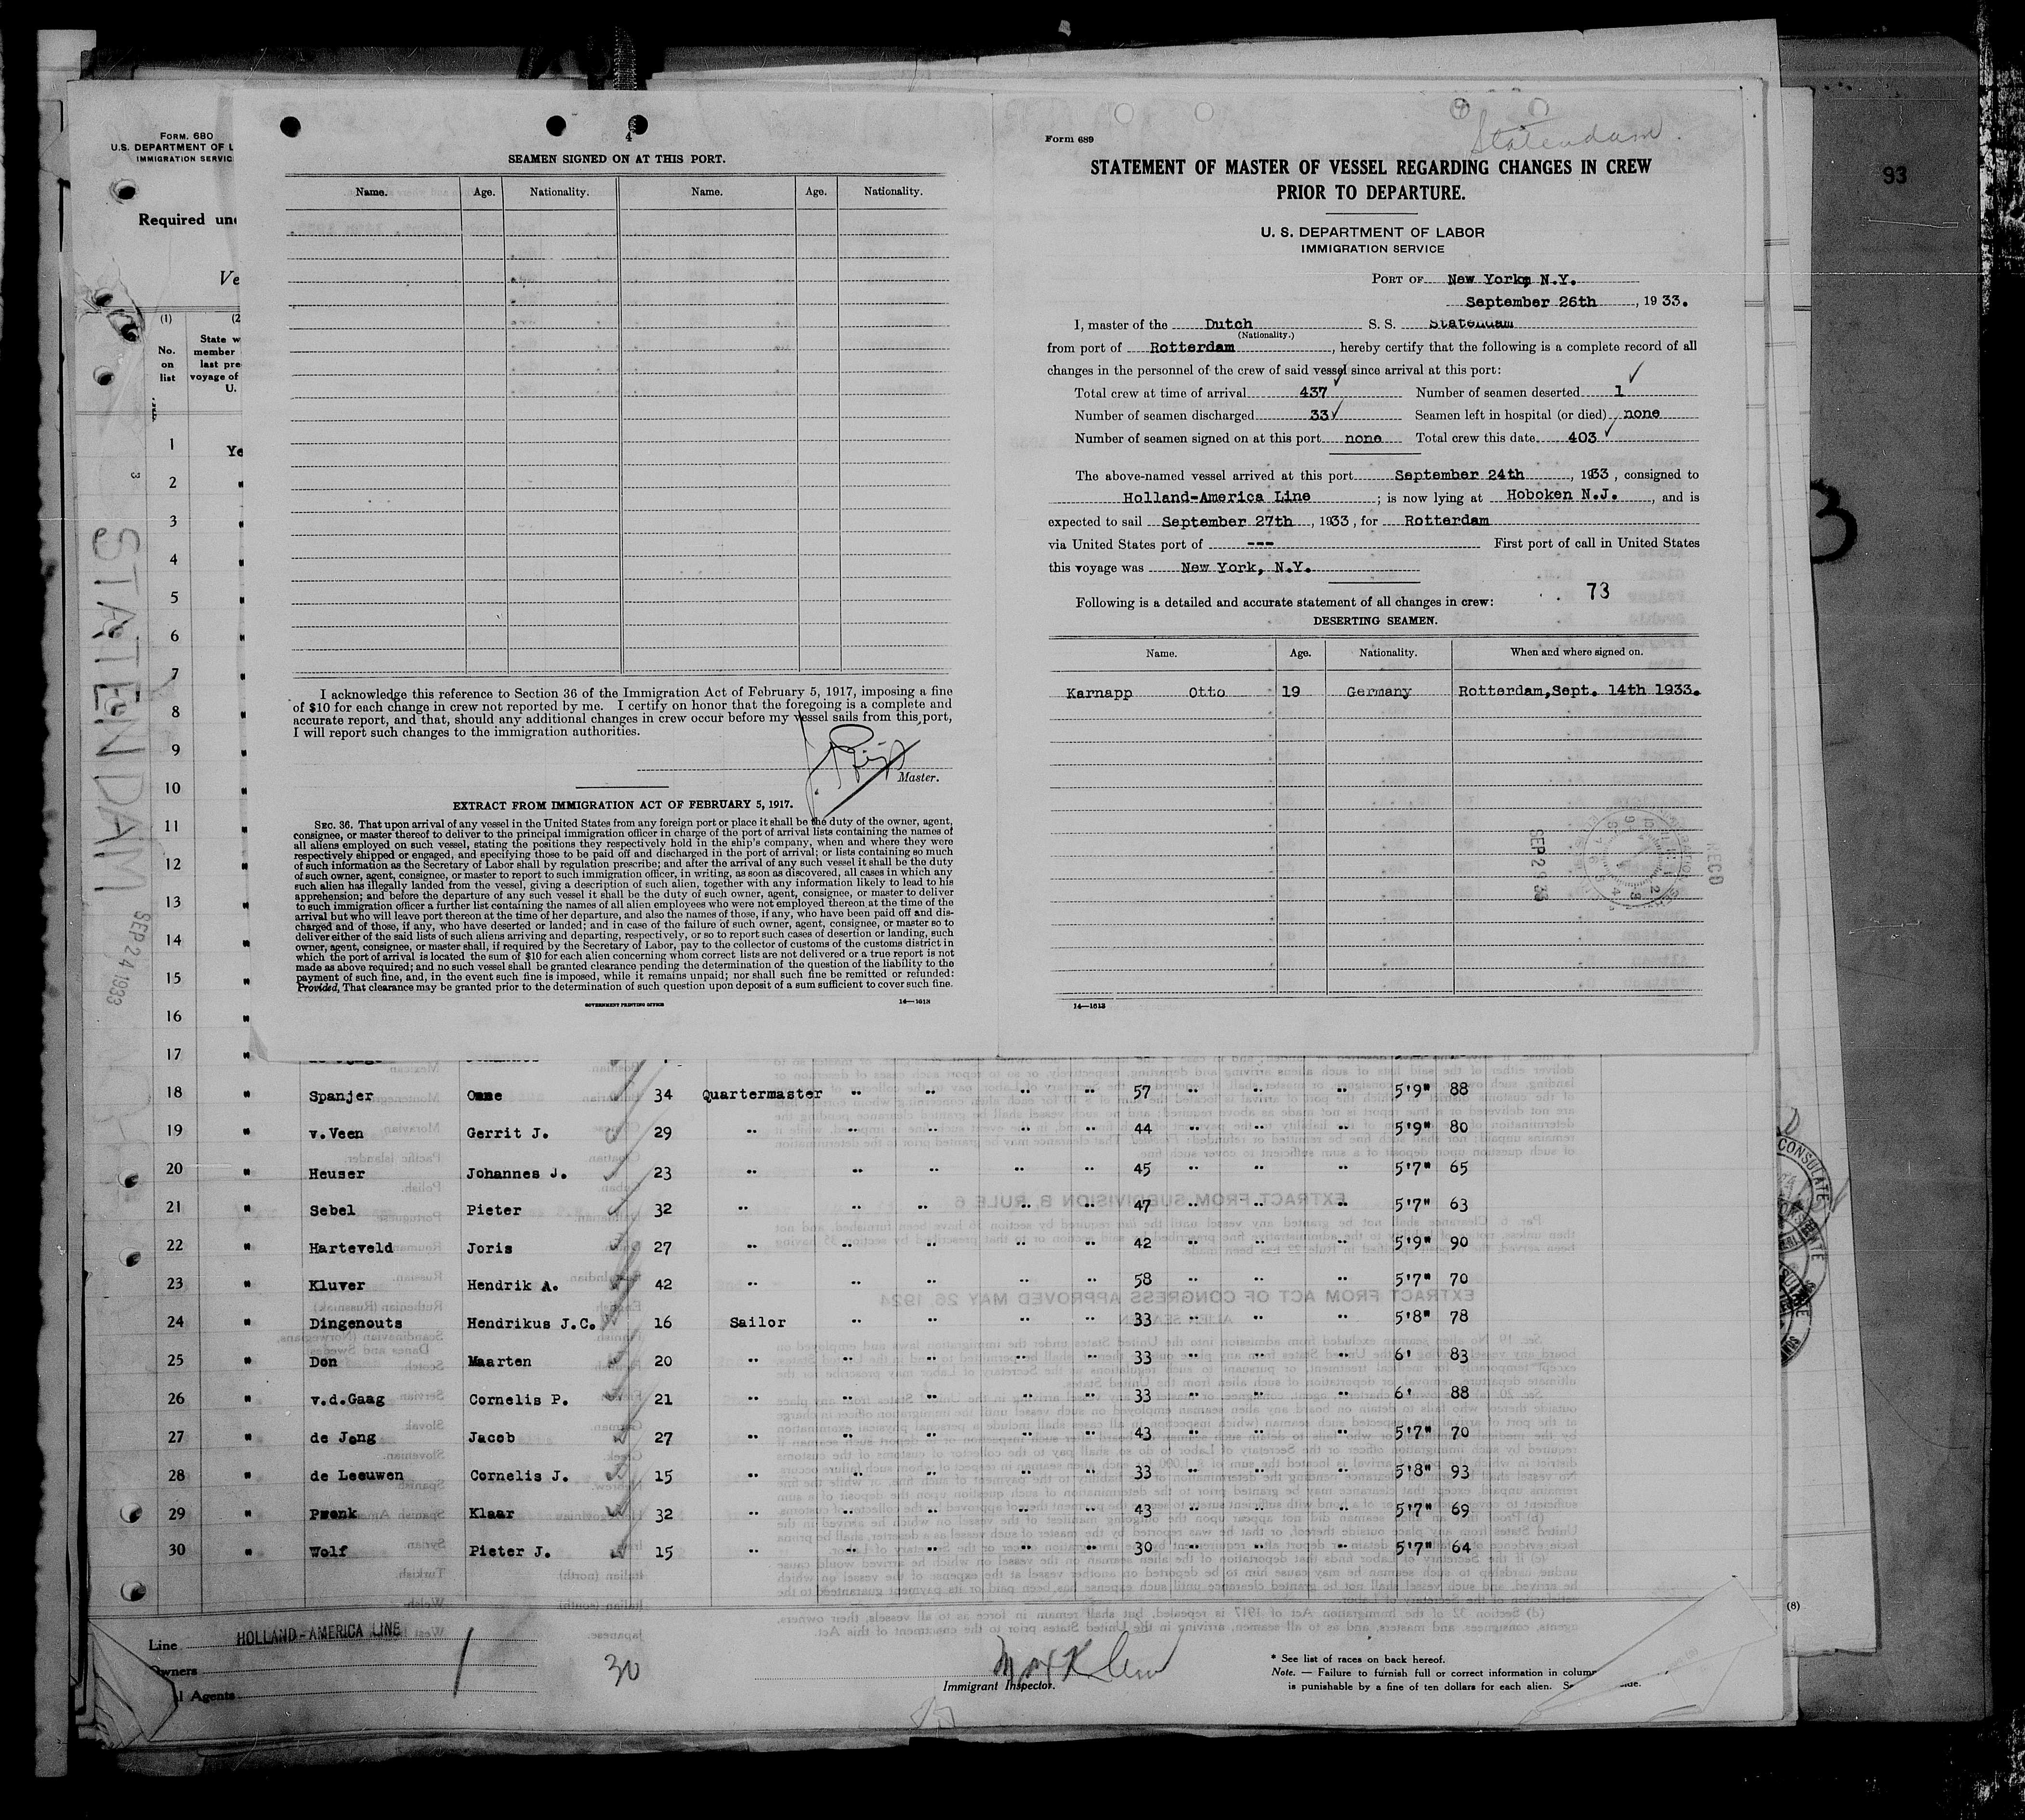 FORM. 680
U.S. DEPARTMENT OF L
IMMIGRATION SERVIC
Required un
Ve
(1) (2
No. on list
State w
member
last pre
voyage of
U.
STATENDAM
SEP 24 1933
3
4
SEAMEN SIGNED ON AT THIS PORT.
Name. Age. Nationality. Name. Age. Nationality.
I acknowledge this reference to Section 36 of the Immigration Act of February 5, 1917, imposing a fine
of $10 for each change in crew not reported by me. I certify on honor that the foregoing is a complete and
accurate report, and that, should any additional changes in crew occur before my vessel sails from this port,
I will report such changes to the immigration authorities.
Master.
EXTRACT FROM IMMIGRATION ACT OF FEBRUARY 5, 1917.
SEC. 36. That upon arrival of any vessel in the United States from any foreign port or place it shall be the duty of the owner, agent,
consignee, or master thereof to deliver to the principal immigration officer in charge of the port of arrival lists containing the names of
all aliens employed on such vessel, stating the positions they respectively hold in the ship's company, when and where they were
respectively shipped or engaged, and specifying those to be paid off and discharged in the port of arrival; or lists containing so much
of such information as the Secretary of Labor shall by regulation prescribe; and after the arrival of any such vessel it shall be the duty
of such owner, agent, consignee, or master to report to such immigration officer, in writing, as soon as discovered, all cases in which any
such alien has illegally landed from the vessel, giving a description of such alien, together with any information likely to lead to his
apprehension; and before the departure of any such vessel it shall be the duty of such owner, agent, consignee, or master to deliver
to such immigration officer a further list containing the names of all alien employees who were not employed thereon at the time of the
arrival but who will leave port thereon at the time of her departure, and also the names of those, if any, who have been paid off and dis-
charged and of those, if any, who have deserted or landed; and in case of the failure of such owner, agent, consignee, or master so to
deliver either of the said lists of such aliens arriving and departing, respectively, or so to report such cases of desertion or landing, such
owner, agent, consignee, or master shall, if required by the Secretary of Labor, pay to the collector of customs of the customs district in
which the port of arrival is located the sum of $10 for each alien concerning whom correct lists are not delivered or a true report is not
made as above required; and no such vessel shall be granted clearance pending the determination of the question of the liability to the
payment of such fine, and, in the event such fine is imposed, while it remains unpaid; nor shall such fine be remitted or refunded:
Provided, That clearance may be granted prior to the determination of such question upon deposit of a sum sufficient to cover such fine.
GOVERNMENT PRINTING OFFICE 14—1613
Form 689
Statendam.
STATEMENT OF MASTER OF VESSEL REGARDING CHANGES IN CREW
PRIOR TO DEPARTURE.
U. S. DEPARTMENT OF LABOR
IMMIGRATION SERVICE
PORT OF New York, N.Y.
September 26th, 1933.
I, master of the Dutch S. S. Statendam
(Nationality.)
from port of Rotterdam, hereby certify that the following is a complete record of all
changes in the personnel of the crew of said vessel since arrival at this port:
Total crew at time of arrival 437 Number of seamen deserted 1
Number of seamen discharged 33 Seamen left in hospital (or died) none
Number of seamen signed on at this port none Total crew this date 403
The above-named vessel arrived at this port September 24th, 1933, consigned to
Holland-America Line; is now lying at Hoboken N.J., and is
expected to sail September 27th, 1933, for Rotterdam
via United States port of --- First port of call in United States
this voyage was New York, N.Y.
73
Following is a detailed and accurate statement of all changes in crew:
DESERTING SEAMEN.
Name. Age. Nationality. When and where signed on.
Karnapp Otto 19 Germany Rotterdam, Sept. 14th 1933.
SEP 29 33
RECD
14—1613
93
3
1 Ye
2 "
3 "
4 "
5 "
6 "
7 "
8 "
9 "
10 "
11 "
12 "
13 "
14 "
15 "
16 "
17 "
18 " Spanjer Onne 34 Quartermaster " " " " 57 " " " 5'9" 88
19 " v.Veen Gerrit J. 29 " " " " " 44 " " " 5'9" 80
20 " Heuser Johannes J. 23 " " " " " 45 " " " 5'7" 65
21 " Sebel Pieter 32 " " " " " 47 " " " 5'7" 63
22 " Harteveld Joris 27 " " " " " 42 " " " 5'9" 90
23 " Kluver Hendrik A. 42 " " " " " 58 " " " 5'7" 70
24 " Dingenouts Hendrikus J.C. 16 Sailor " " " " 33 " " " 5'8" 78
25 " Don Maarten 20 " " " " " 33 " " " 6' 83
26 " v.d.Gaag Cornelis P. 21 " " " " " 33 " " " 6' 88
27 " de Jong Jacob 27 " " " " " 43 " " " 5'7" 70
28 " de Leeuwen Cornelis J. 15 " " " " " 33 " " " 5'8" 93
29 " Pronk Klaar 32 " " " " " 43 " " " 5'7" 69
30 " Wolf Pieter J. 15 " " " " " 30 " " " 5'7" 64
Line HOLLAND-AMERICA LINE
Owners
l Agents
30
Immigrant Inspector.
* See list of races on back hereof.
Note. — Failure to furnish full or correct information in colum
is punishable by a fine of ten dollars for each alien.
(8)
CONSULATE